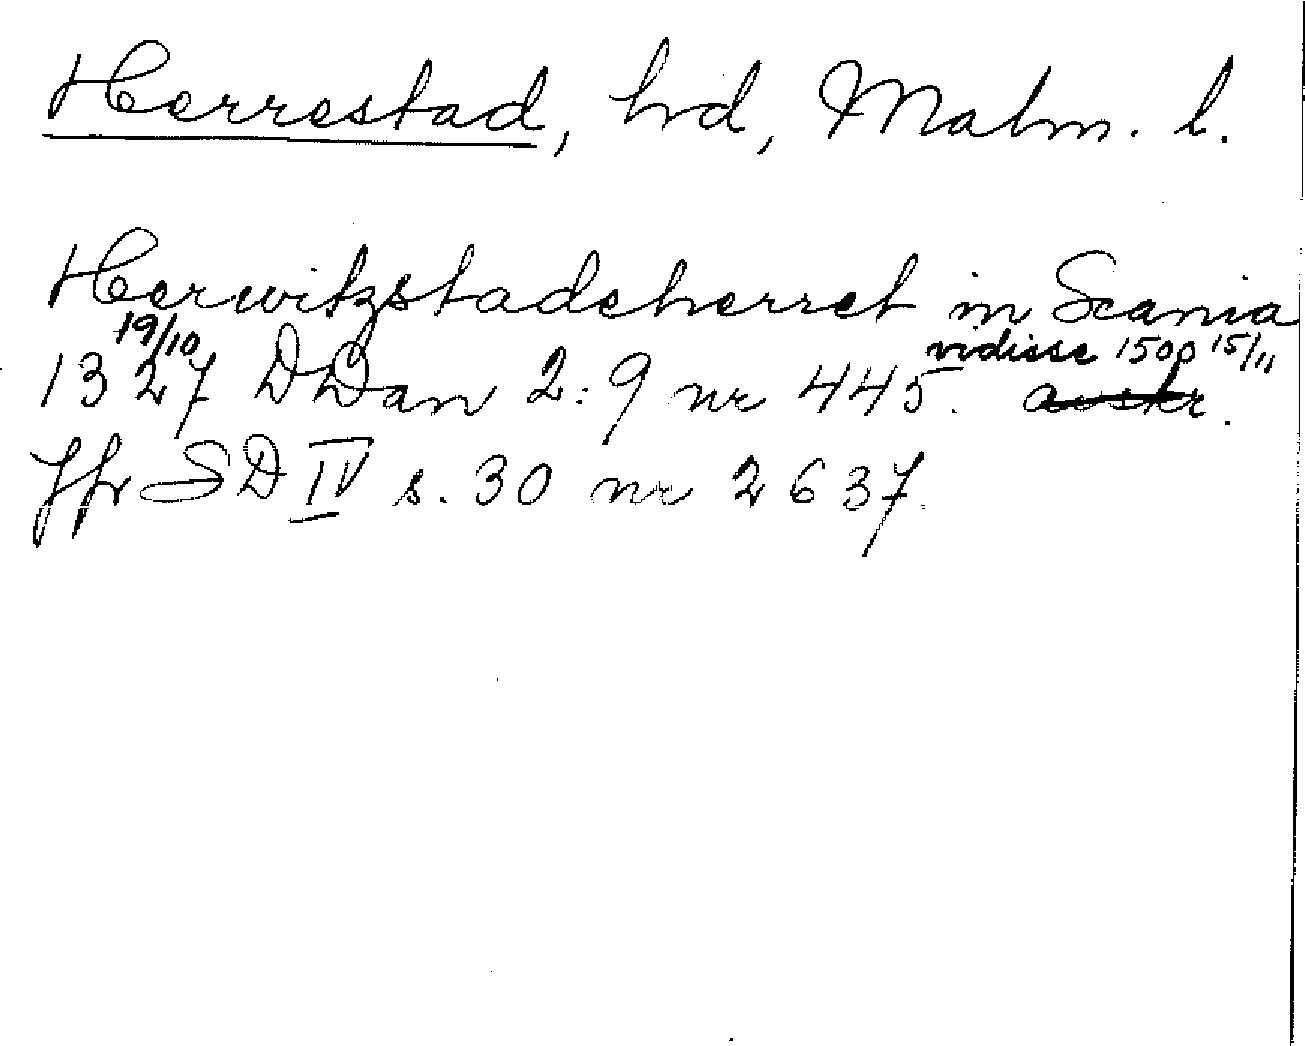 Herrestad, hd, Malm. l.
Herwitzstadeherret in Scania
19/10 vidisse 1500 15/11
1327 DDan 2:9 nr 445. avskr.
Jfr SD IV s. 30 nr 2637.